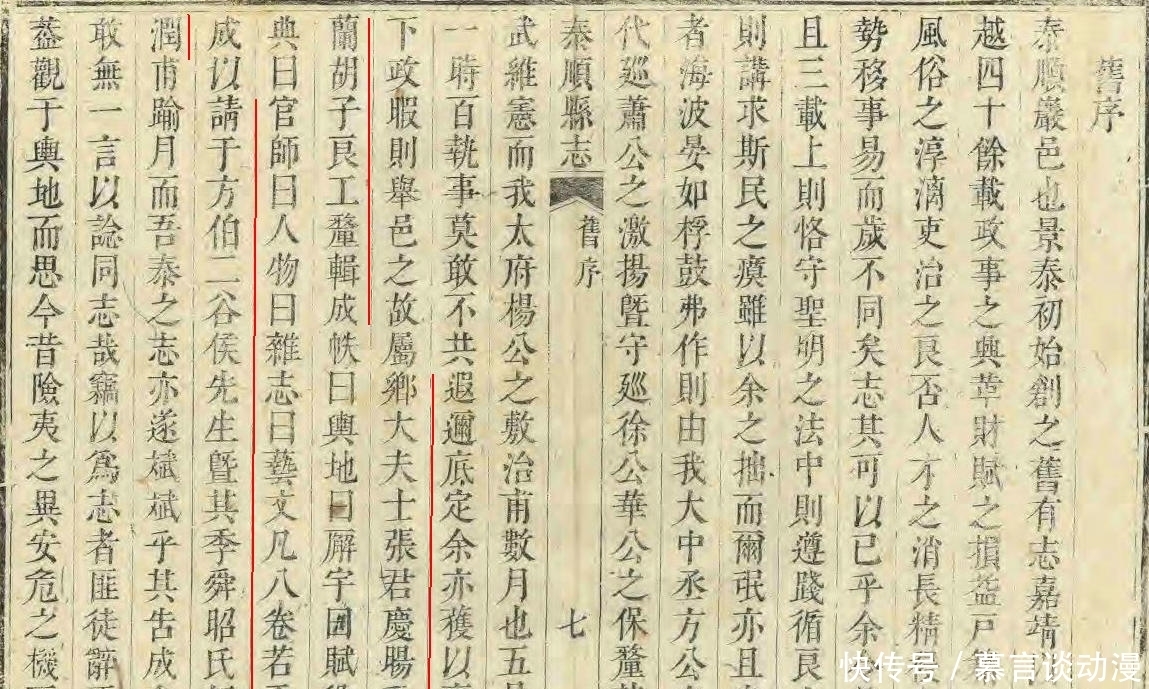 舊序
泰順巖邑也景泰初始創之舊有志嘉靖
越四十餘載政事之興革財賦之損益戶
風俗之淳漓吏治之良否人才之消長精
勢移事易而歲不同矣志其可以已乎余
且三載上則恪守聖明之法中則遵踐循良
則講求斯民之瘼雖以余之拙而爾氓亦且
者海波晏如桴鼓弗作則由我大中丞方公
代巡蕭公之激揚暨守巡徐公華公之保釐
泰順縣志
舊序
七
武維憲而我太府楊公之敷治甫數月也五
一時百執事莫敢不共遐邇底定余亦獲以
下政暇則舉邑之故屬鄉大夫士張君慶暘
蘭胡子良工釐輯成帙曰輿地曰廨宇曰賦
典曰官師曰人物曰雜志曰藝文凡八卷若
成以請于方伯二谷侯先生暨其季舜昭氏
潤甫踰月而吾泰之志亦遂斌斌乎其告成
敢無一言以諗同志哉竊以為志者匪徒辭
葢觀于輿地而思今昔險夷之異安危之機
快传号 / 慕言谈动漫